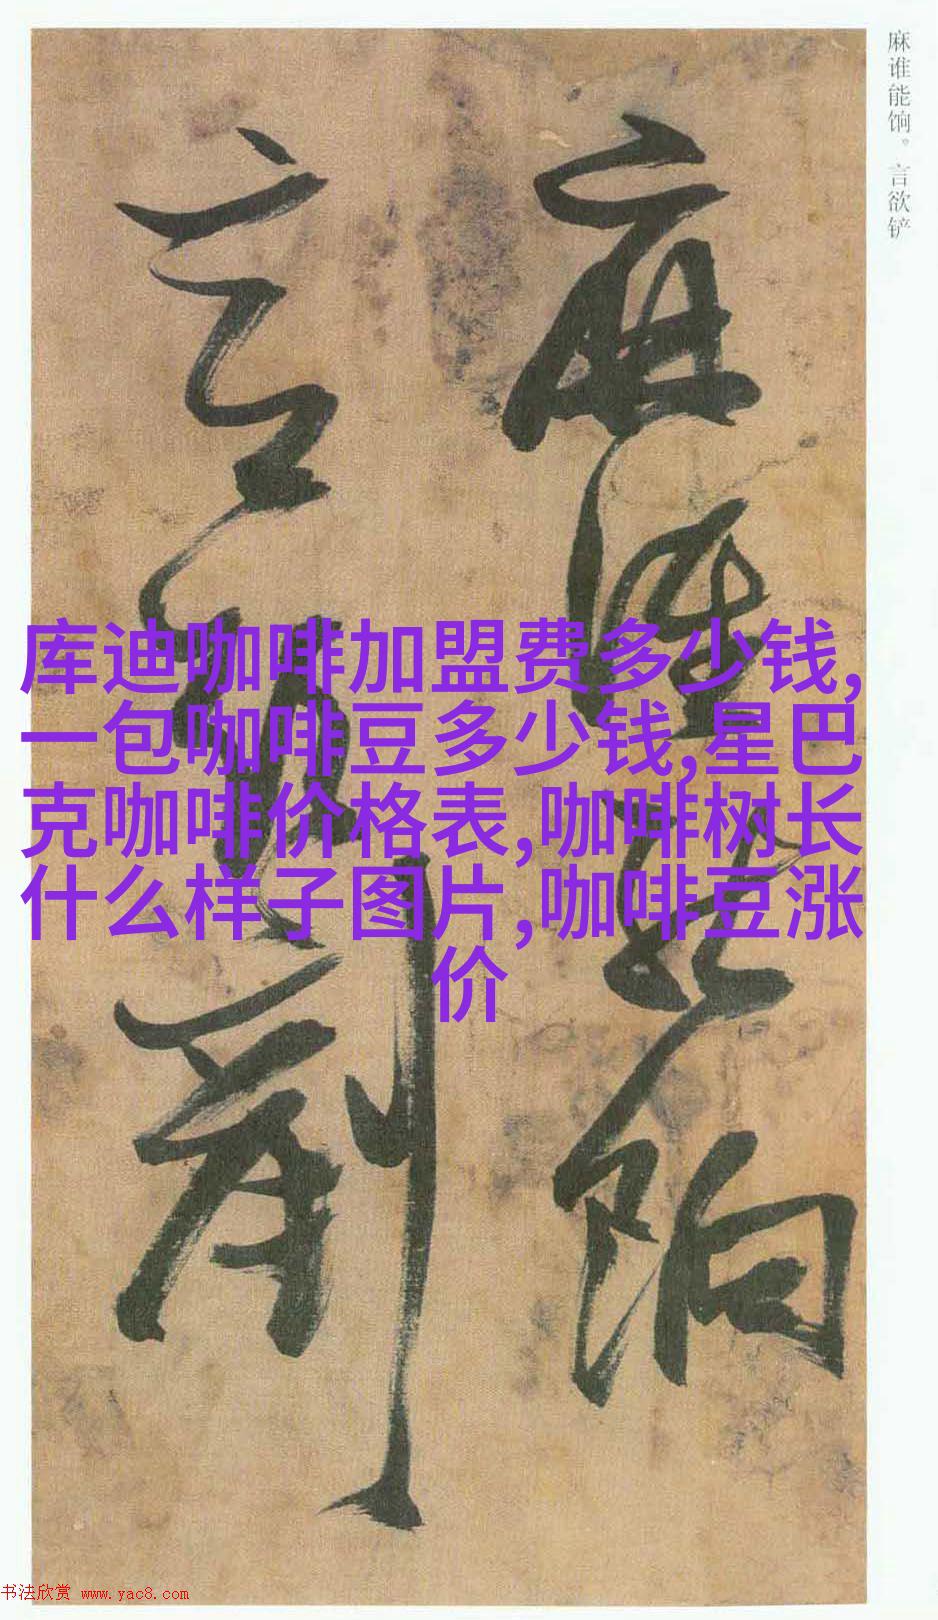 麻谁能饷。言欲铲
麻谁能饷
言欲剷
库迪咖啡加盟费多少钱,
一包咖啡豆多少钱,星巴
克咖啡价格表,咖啡树长
什么样子图片,咖啡豆涨
价
书法欣赏 www.yac8.com